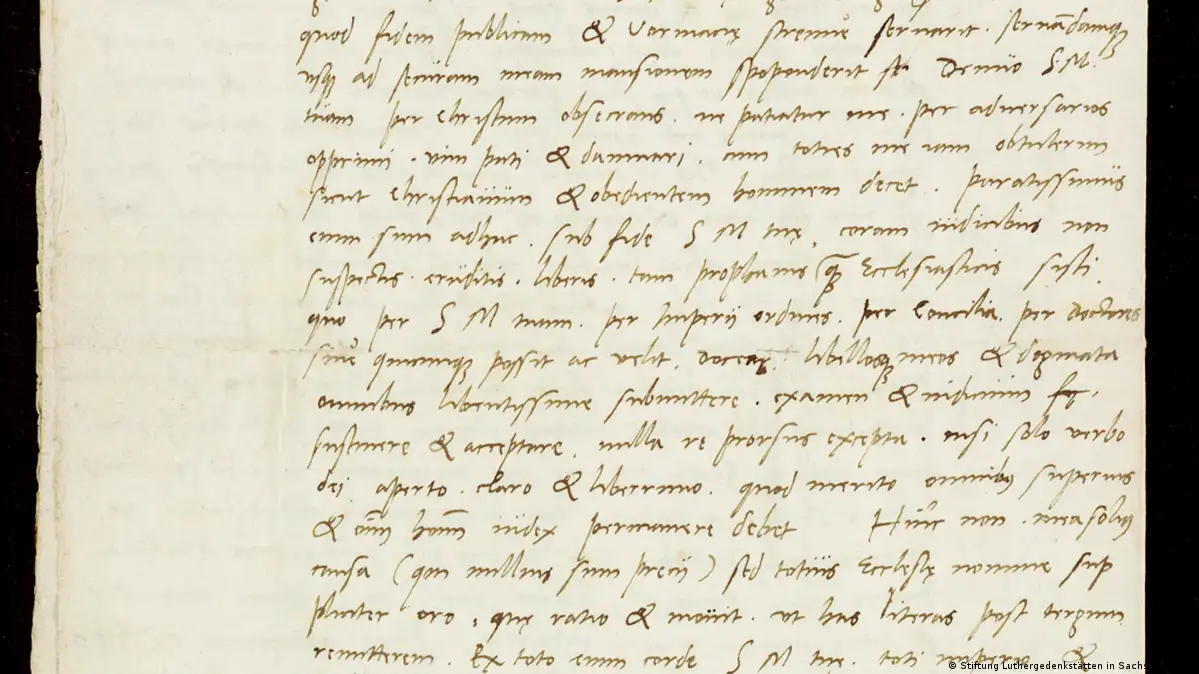 quod fidem publicam & Vormacię strenue servarit . servandamque
usque ad securam meam mansionem spoponderit Denuo S. M.
tuam per Christum obsecrans . ne patiatur me . per adversarios
opprimi . vim pati & damnari . cum toties me iam obtulerim
sicut Christianum & obedientem hominem decet . Paratissimus
enim sum adhuc . sub fide S M tuę , coram iudicibus non
suspectis . eruditis . liberis . tam prophanis quam Ecclesiasticis sisti .
quo per S M tuam . per Imperii ordines . per Concilia . per doctores
sive quicunque possit ac velit . docear . libellosque meos & dogmata
omnibus libentissime submittere . examen & iudicium
sustinere & acceptare . nulla re prorsus excepta . nisi solo verbo
dei aperto . claro & liberrimo . quod merito omnibus superius
& oīm hoīm iudex permanere debet Hinc non . mea solius
causa (qui nullius sum precii) sed totius Ecclesię nomine sup
pliciter oro , quę ratio & movit . ut has literas post tergum
remitterem . Ex toto enim corde S M tuę . toti imperio &
© Stiftung Luthergedenkstätten in Sachs